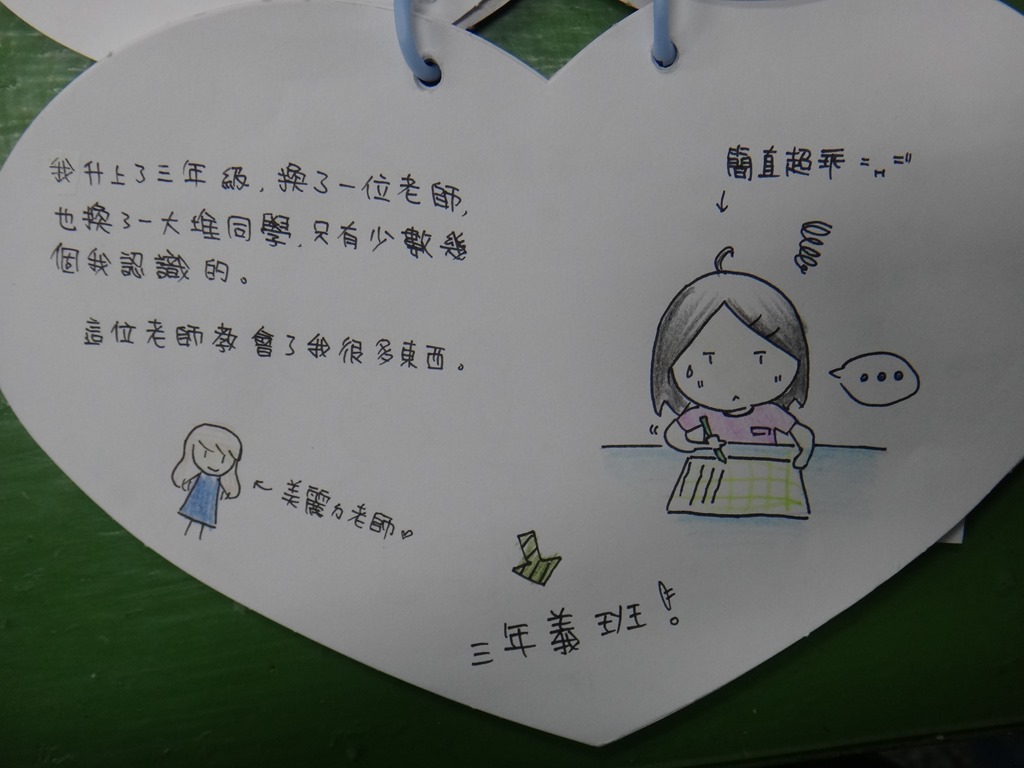 我升上了三年級，換了一位老師，
也換了一大堆同學，只有少數幾
個我認識的。
這位老師教會了我很多東西。
美麗ㄉ老師♡
簡直超乖 =_="
...
三年義班！